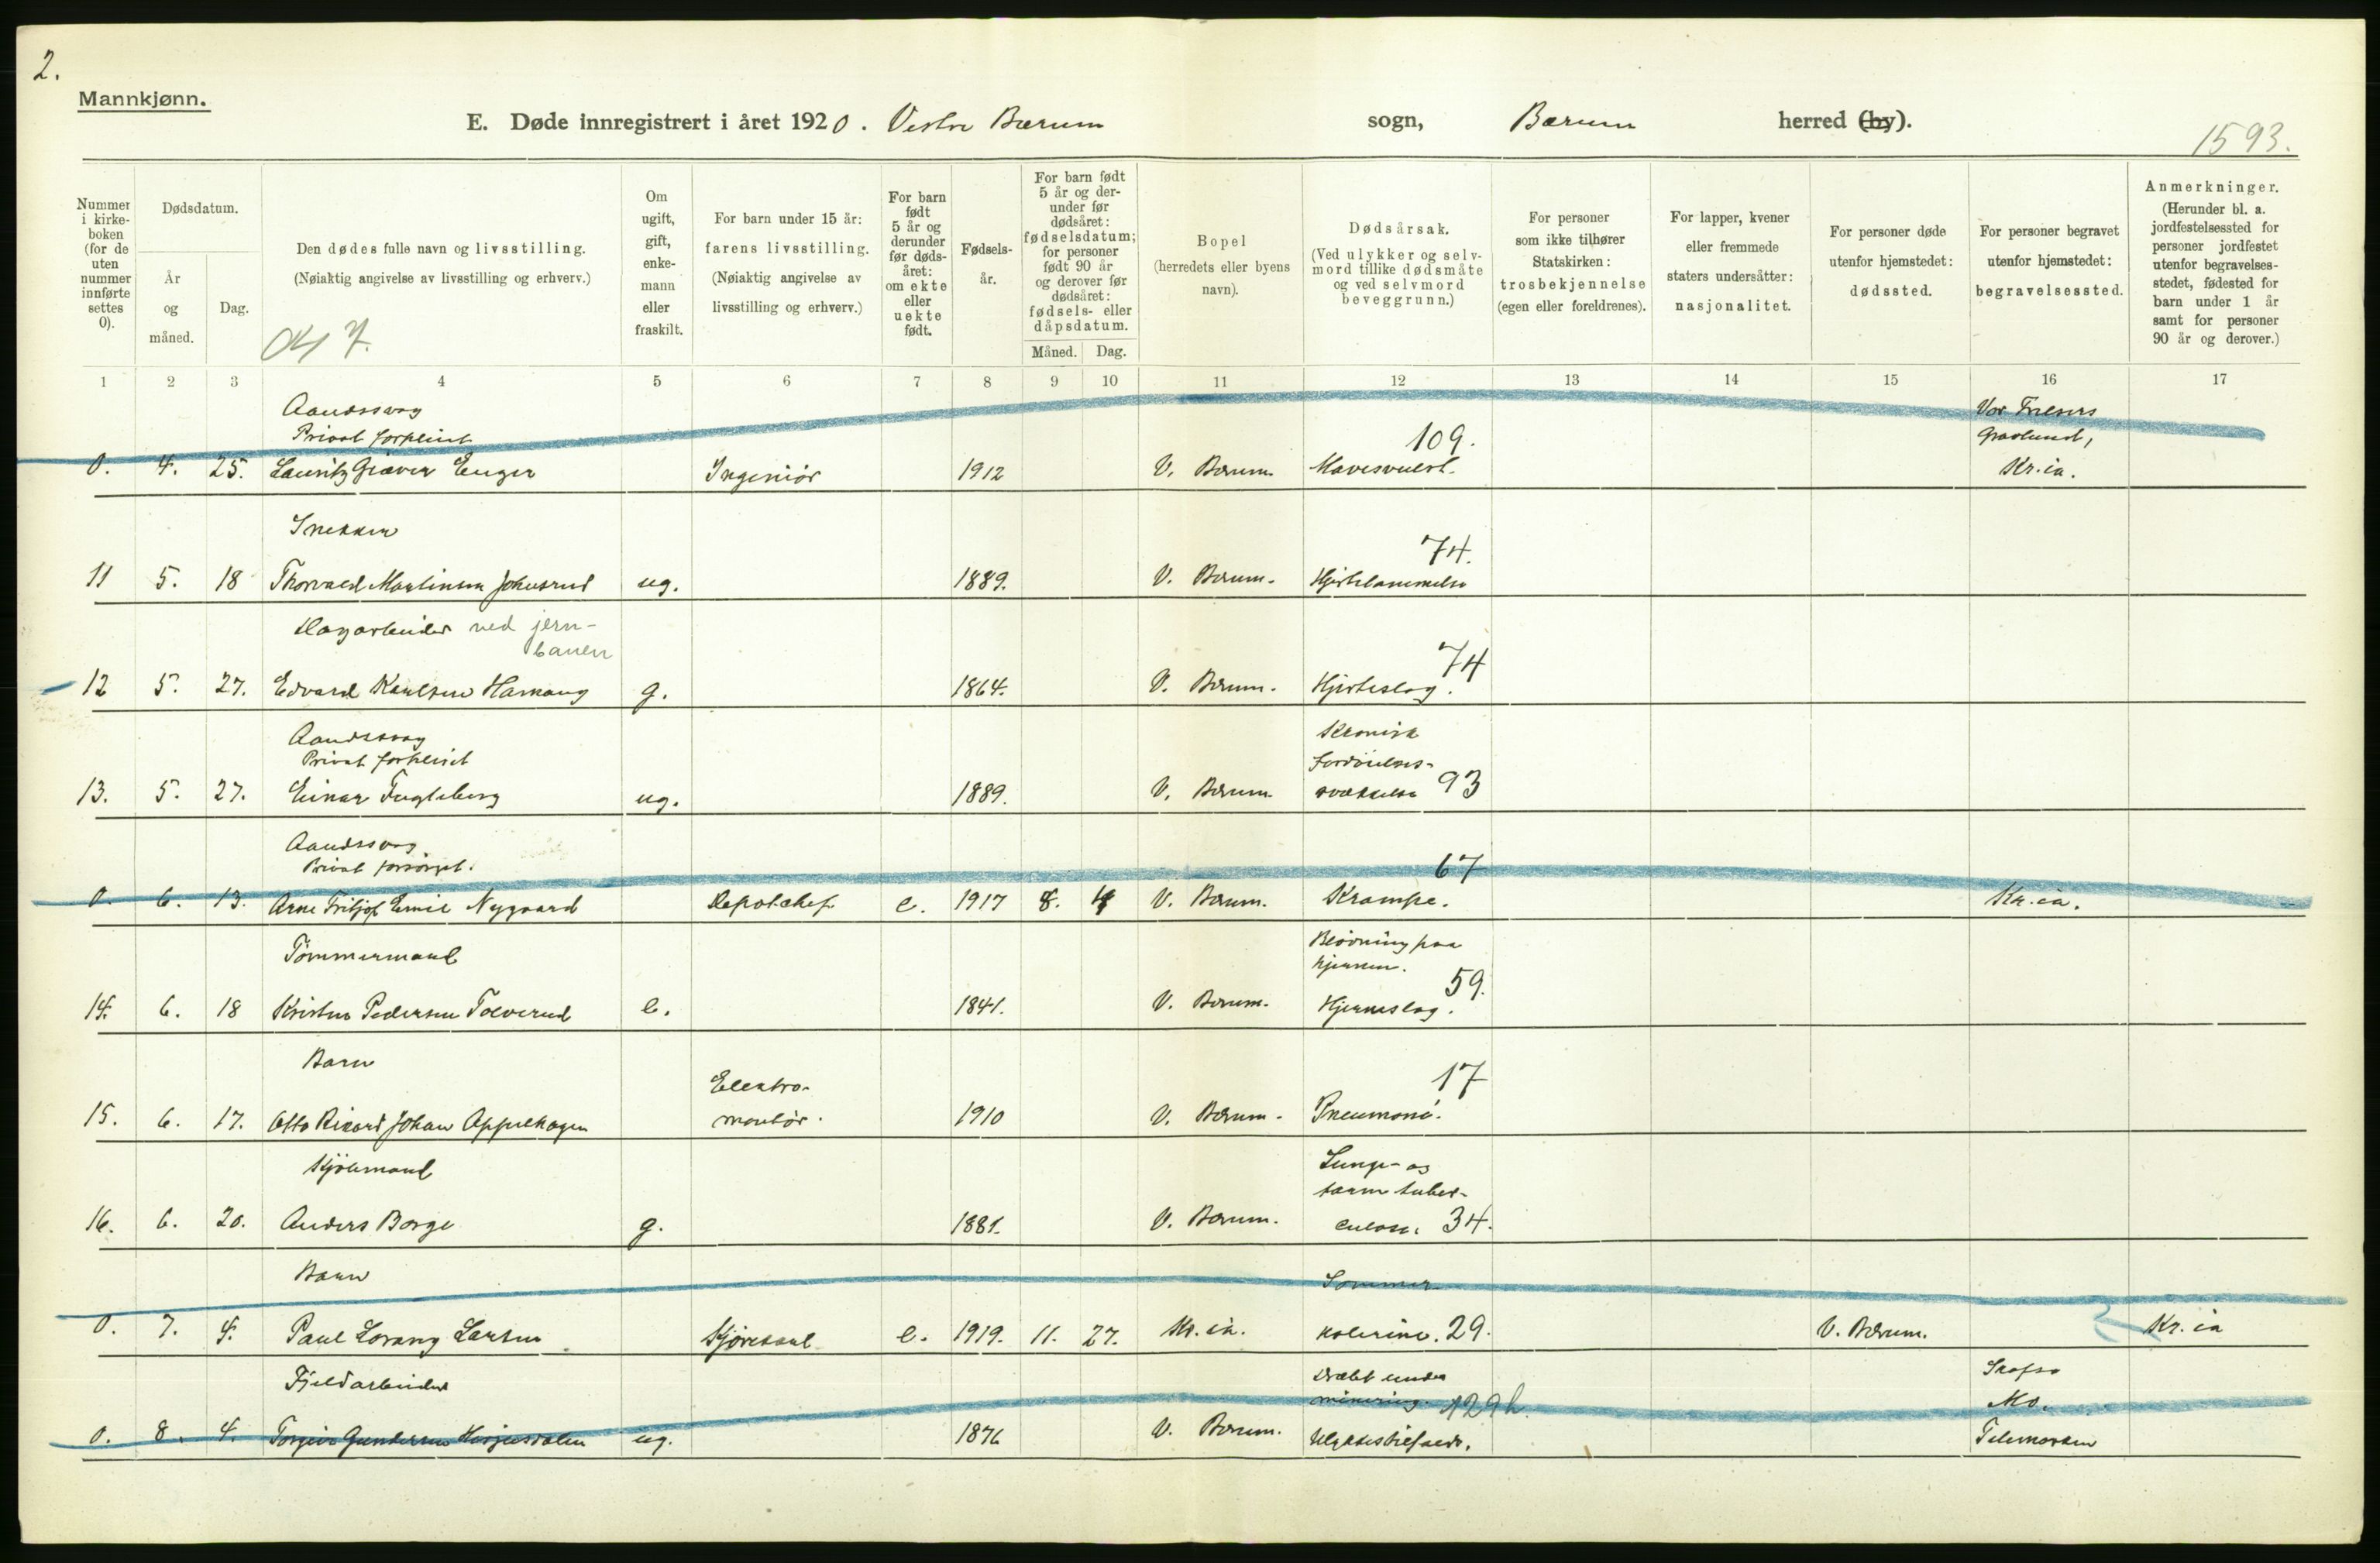 2.
Mannkjønn.
E. Døde innregistrert i året 1920. Vestre Bærum sogn, Bærum herred (by).
1593.
Nummer i kirkeboken (for de uten nummer innførte settes 0).
Dødsdatum.
År og måned.
Dag.
Den dødes fulle navn og livsstilling.
(Nøiaktig angivelse av livsstilling og erhverv.)
Om ugift, gift, enkemann eller fraskilt.
For barn under 15 år:
farens livsstilling.
(Nøiaktig angivelse av livsstilling og erhverv.)
For barn født 5 år og derunder før dødsåret: om ekte eller uekte født.
Fødselsår.
For barn født 5 år og derunder før dødsåret: fødselsdatum; for personer født 90 år og derover før dødsåret: fødsels- eller dåpsdatum.
Måned. Dag.
Bopel
(herredets eller byens navn).
Dødsårsak.
(Ved ulykker og selvmord tillike dødsmåte og ved selvmord beveggrunn.)
For personer som ikke tilhører Statskirken:
trosbekjennelse
(egen eller foreldrenes).
For lapper, kvener eller fremmede staters undersåtter:
nasjonalitet.
For personer døde utenfor hjemstedet:
dødssted.
For personer begravet utenfor hjemstedet:
begravelsessted.
Anmerkninger.
(Herunder bl. a. jordfestelsessted for personer jordfestet utenfor begravelsesstedet, fødested for barn under 1 år samt for personer 90 år og derover.)
1 2 3 4 5 6 7 8 9 10 11 12 13 14 15 16 17
Aandssvag Vor Frelsers
Privat forpleiet 109. Gravlund,
0. 4. 25. Lauritz Giæver Enger Ingeniør 1912 V. Bærum Mavesvulst. Kr.ia.
Snekker
74.
11 5. 18 Thorvald Martinsen Johnsrud ug. 1889. V. Bærum. Hjertelammelse
Dagarbeider ved jern-
banen 74
12 5. 27. Edvard Karlsen Hamang g. 1864. V. Bærum. Hjerteslag.
Aandssvag Kronisk
Privat forpleiet Fordøielses-
13. 5. 27. Einar Fugleberg ug. 1889. V. Bærum svækkelse 93
Aandssvag
Privat forsørget. 67
0. 6. 13. Arne Fritjof Emil Nygaard Depotchef e. 1917 8. 4 V. Bærum. Krampe. Kr.ia.
Tømmermand Blødning paa
hjernen. 59.
14. 6. 18 Kristen Pedersen Tolverud e. 1841. V. Bærum. Hjerneslag.
Barn
Elektro- 17
15. 6. 17. Otto Rikard Johan Appelhagen montør. 1910 V. Bærum. Pneumoni.
Kjølemand Lunge- og
tarm tuber-
16. 6. 20. Anders Borge g. 1881. V. Bærum. culose. 34.
Barn Sommer-
0. 7. 4. Paul Lorang Larsen Kjørekarl e. 1919. 11. 27. Kr.ia. kolerine. 29. V. Bærum. Kr.ia
Fjeldarbeider Dræbt under
minering. 129h. Mo.
0. 8. 4. Torgeir Gundersen ug. 1876 V. Bærum. Ulykkestilfælde. Telemarken